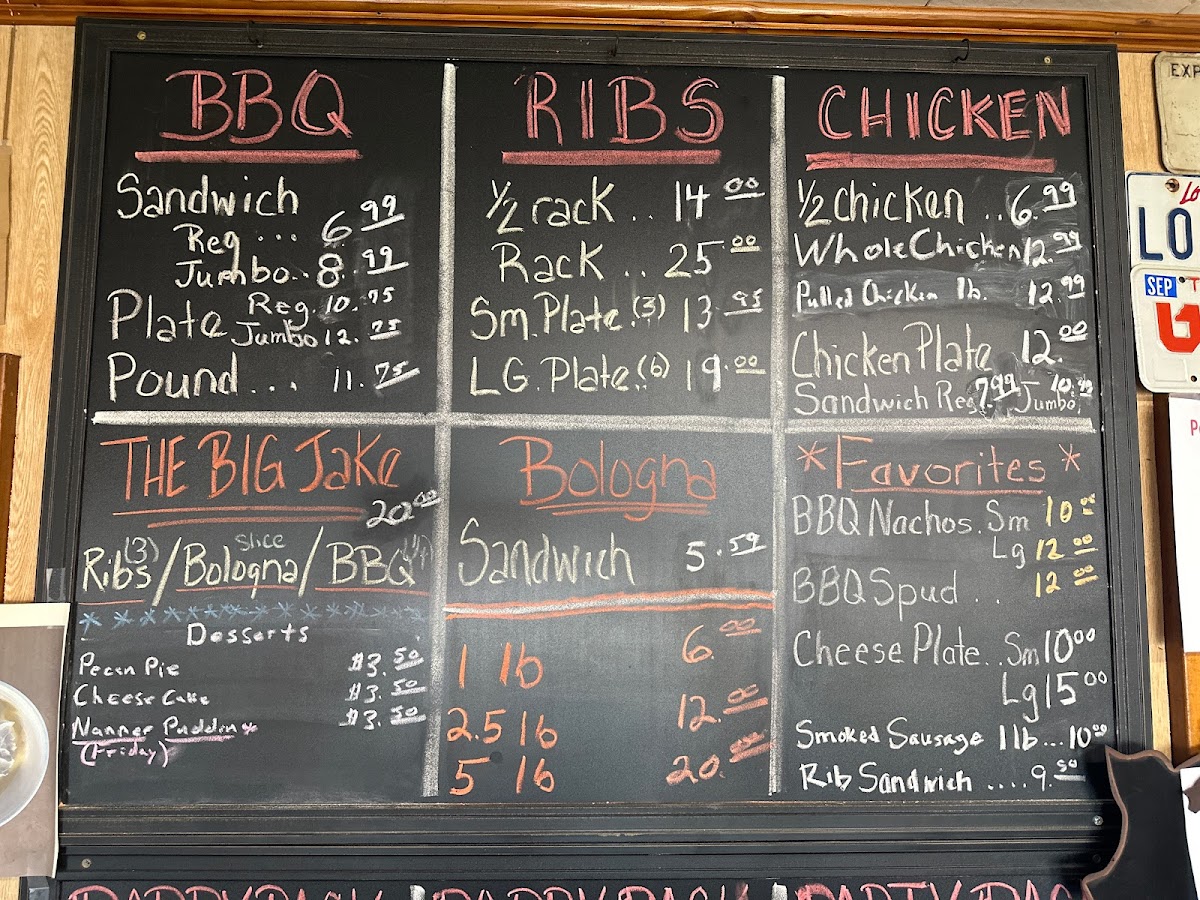 BBQ
Sandwich
Reg ... 6.99
Jumbo.. 8.99
Plate Reg. 10.75
Jumbo 12.75
Pound... 11.75
RIBS
1/2 rack .. 14 00
Rack .. 25 00
Sm. Plate.(3) 13.95
LG. Plate.(6) 19.00
CHICKEN
1/2 chicken .. 6.99
Whole Chicken 12.99
Pulled Chicken lb. 12.99
Chicken Plate 12.00
Sandwich Reg. 7.99 Jumbo, 10.49
THE BIG JaKe
20.00
Ribs(3)/Bologna slice/BBQ
**************
Desserts
Pecan Pie $3.50
Cheese Cake $3.50
Nanner Pudding $3.50
(Friday)
Bologna
Sandwich 5.59
1 lb 6.00
2.5 lb 12.00
5 lb 20.00
*Favorites*
BBQ Nachos. Sm 10 00
Lg 12 00
BBQ Spud .. 12 00
Cheese Plate.. Sm 10 00
Lg 15 00
Smoked Sausage 1 lb... 10 00
Rib Sandwich .... 9.50
EXP
LO
SEP